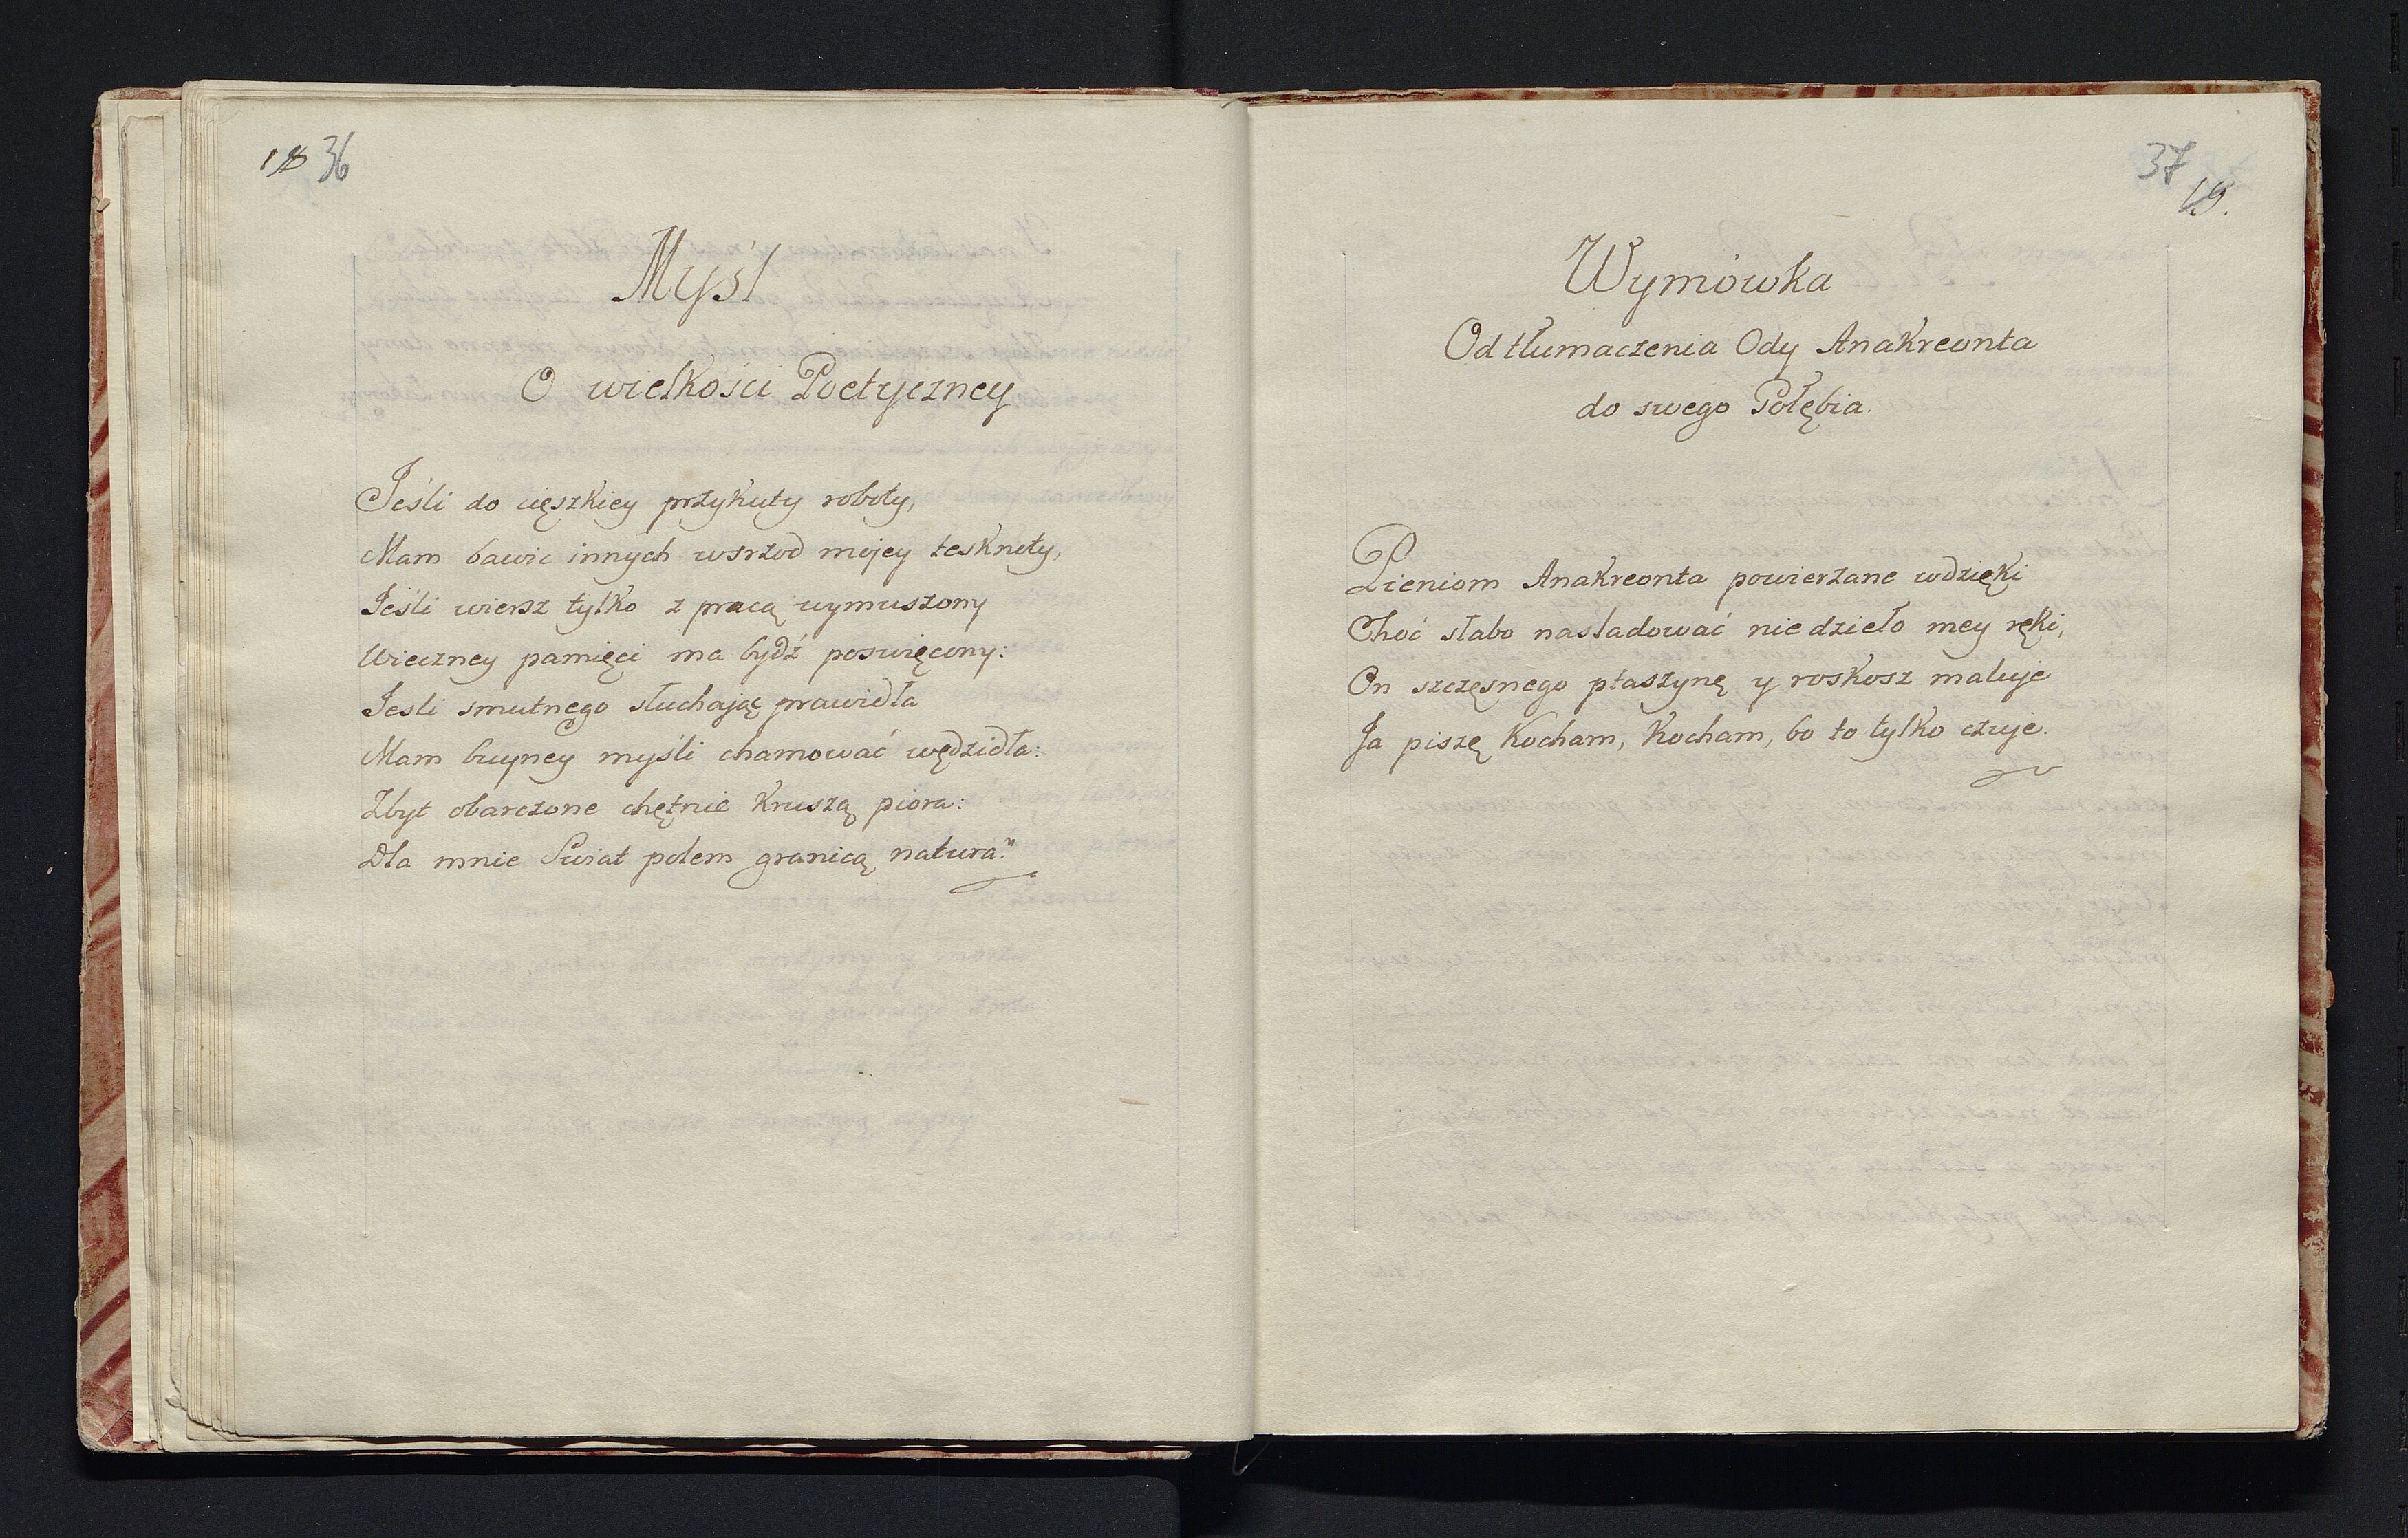 18 36
Myśl
O wielkości Poetyczney
Jeśli do cięszkiey przykuty roboty,
Mam bawic innych wsrzod mojey tesknoty,
Jeśli wiersz tylko z pracą wymuszony
Wieczney pamięci ma bydź poswięcony:
Jesli smutnego słuchając prawidła
Mam buyney myśli chamować wędzidła:
Zbyt obarczone chętnie kruszą piora:
Dla mnie Swiat polem granicą natura."
37
19.
Wymówka
Od tłumaczenia Ody Anakreonta
do swego Gołębia.
Pieniom Anakreonta powierzane wdzięki
Choć słabo nasladować nie dzieło mey ręki,
On szczęsnego ptaszynę y roskosz maluje
Ja piszę Kocham, Kocham, bo to tylko czuje.